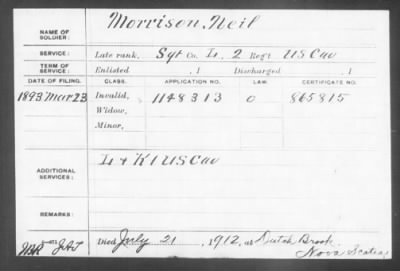 NAME OF SOLDIER: Morrison, Neil
SERVICE: Late rank, Sgt Co. L, 2 Reg't US Cav
TERM OF SERVICE: Enlisted , 1 Discharged , 1
DATE OF FILING. CLASS. APPLICATION NO. LAW. CERTIFICATE NO.
1893 Mar 23 Invalid, 1148313 O 865815
Widow,
Minor,
ADDITIONAL SERVICES: L & K 1 US Cav
REMARKS:
Died July 21, 1912, at Dutch Brook
Nova Scotia